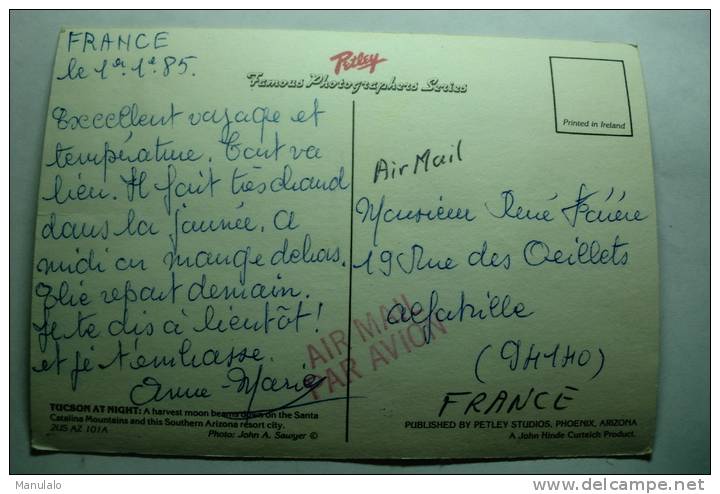 FRANCE
le 1er.1e 85.
Excellent voyage et
température. Tout va
bien. Il fait très chaud
dans la journée. A
midi on mange dehors.
repart demain.
Je te dis à bientôt!
et je t'embrasse.
Anne-Marie
TUCSON AT NIGHT: A harvest moon beams down on the Santa
Catalina Mountains and this Southern Arizona resort city.
2US AZ 101A
Photo: John A. Sawyer ©
Petley
Famous Photographers Series
Printed in Ireland
Air Mail
Monsieur René
19 Rue des Oeillets
Alfortville
(94140)
FRANCE
AIR MAIL
PAR AVION
PUBLISHED BY PETLEY STUDIOS, PHOENIX, ARIZONA
A John Hinde Curteich Product.
Manulalo
www.delcampe.net